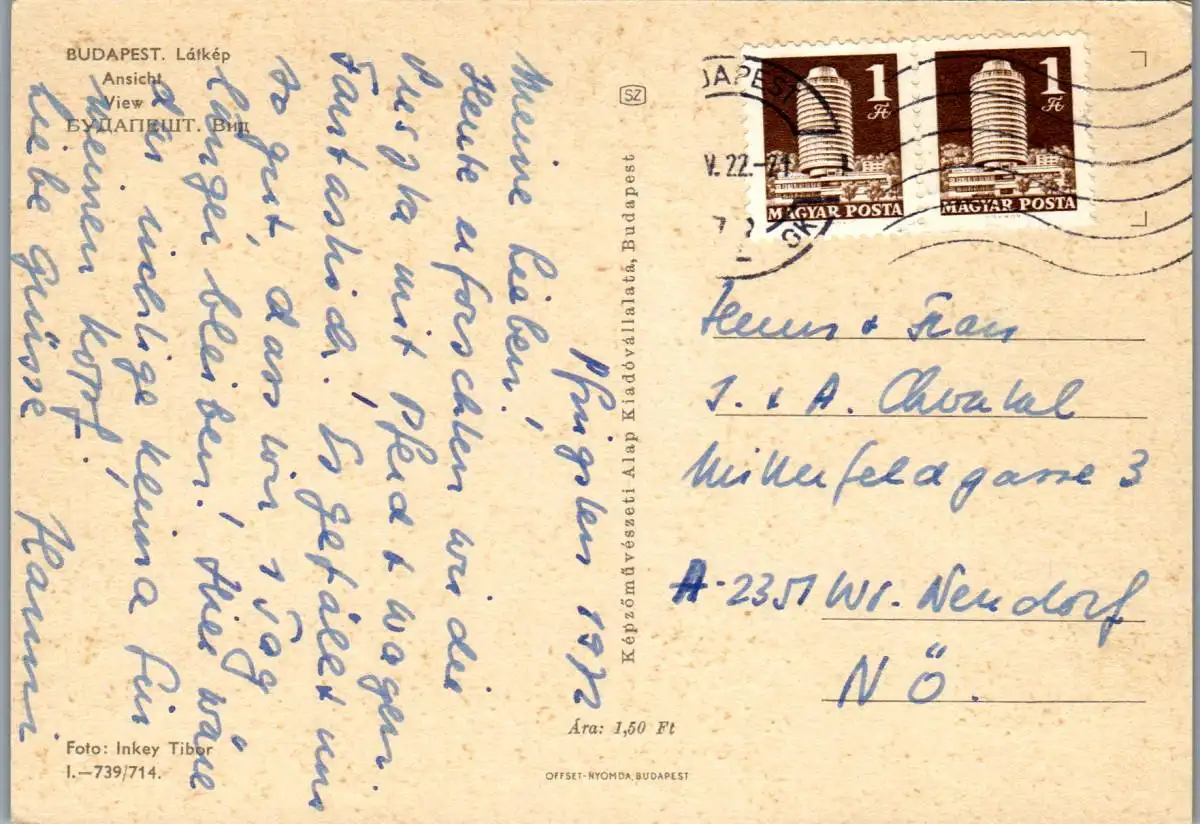 BUDAPEST. Látkép
Ansicht
View
БУДАПЕШТ. Вид
Pfingsten 1972
Meine Lieben!
Heute erforschten wir die
Puszta mit Pferd + Wagen.
Fantastisch! Es gefällt uns
so gut, dass wir 1 Tag
länger bleiben! Hier wäre
der richtige Klima für
meinen Kopf!
Liebe Grüsse Hanni
Foto: Inkey Tibor
I.—739/714.
SZ
Képzőművészeti Alap Kiadóvállalata, Budapest
Ára: 1,50 Ft
OFFSET-NYOMDA, BUDAPEST
1 Ft
MAGYAR POSTA
1 Ft
MAGYAR POSTA
V. 22.-21
Herrn + Frau
J. + A. Chvatal
Mitterfeldgasse 3
A-2351 Wr. Neudorf
NÖ.